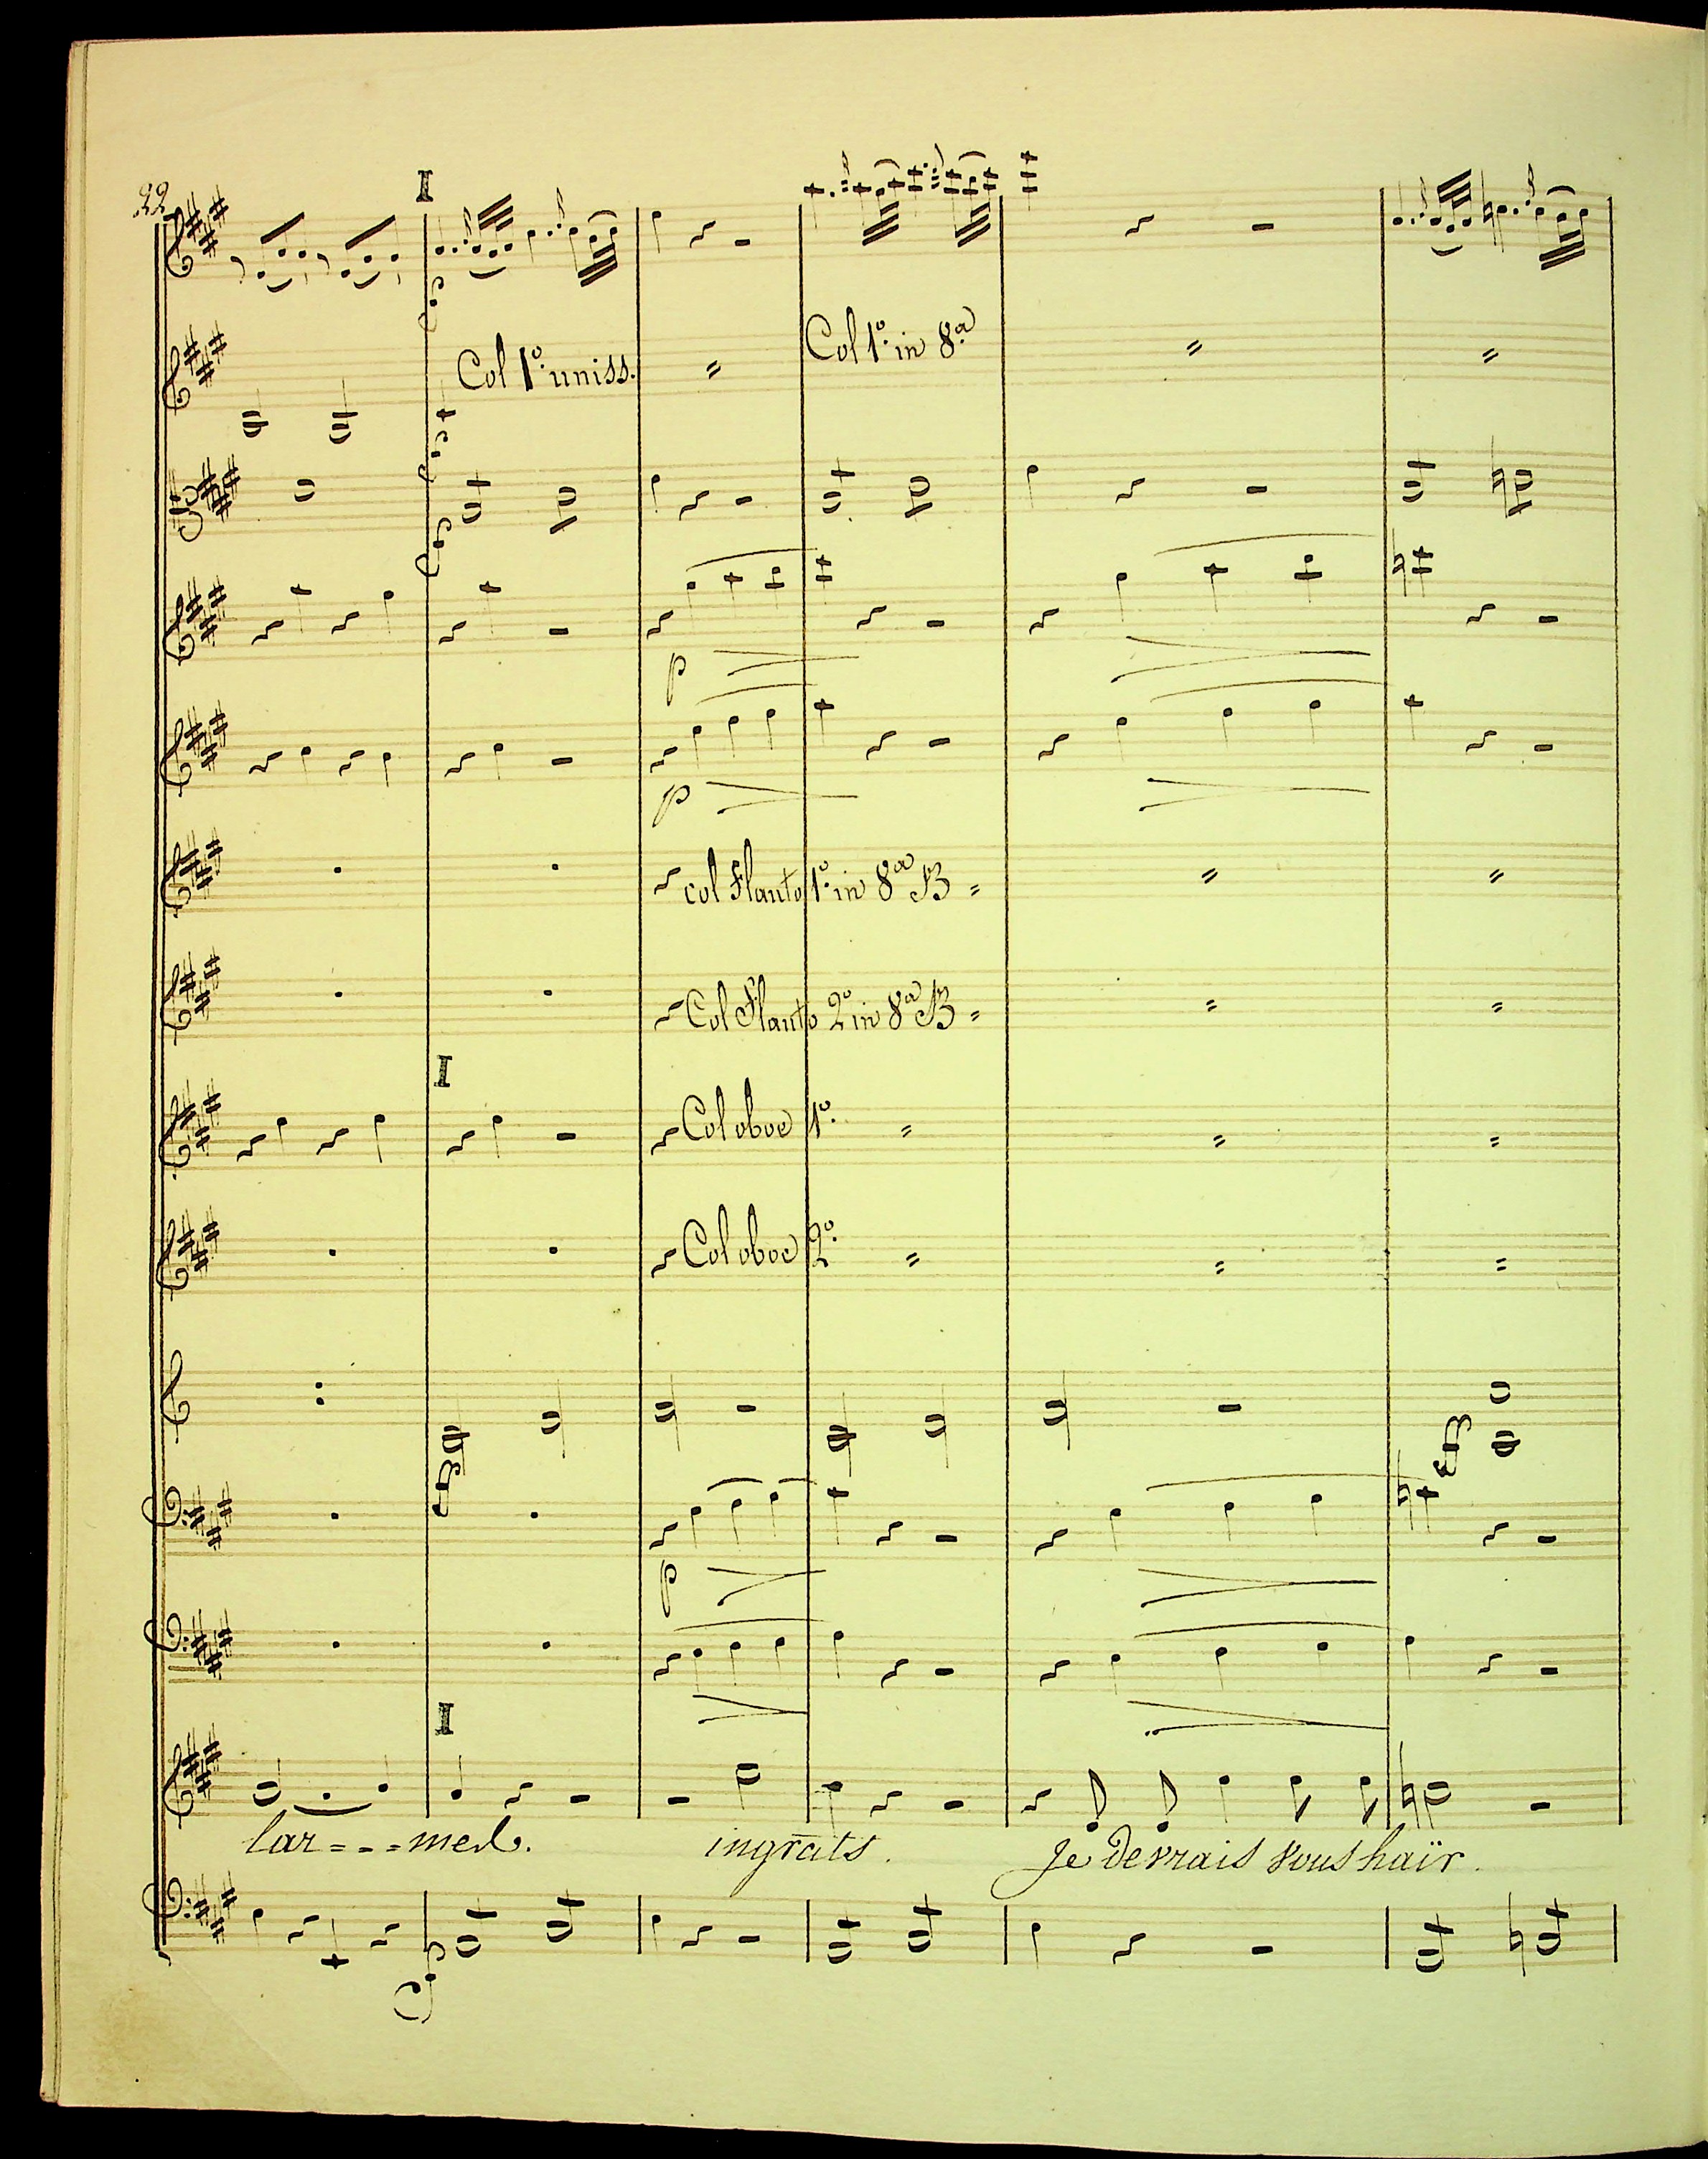 22
I
Col 1º. uniss.
Col 1º. in 8ª
p
p
col Flauto 1º. in 8ª B
Col Flauto 2º in 8ª B
I
Col oboe 1º.
Col oboe 2º.
p
I
lar=--=mes. ingrats. Je devrais vous haïr.